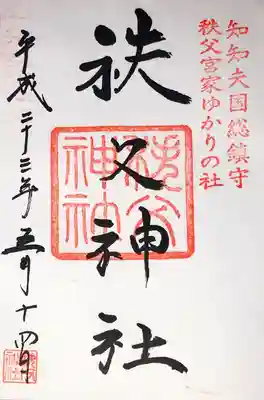 知知夫国総鎮守
秩父宮家ゆかりの社
秩父神社
秩父
神社
平成二十三年五月十四日